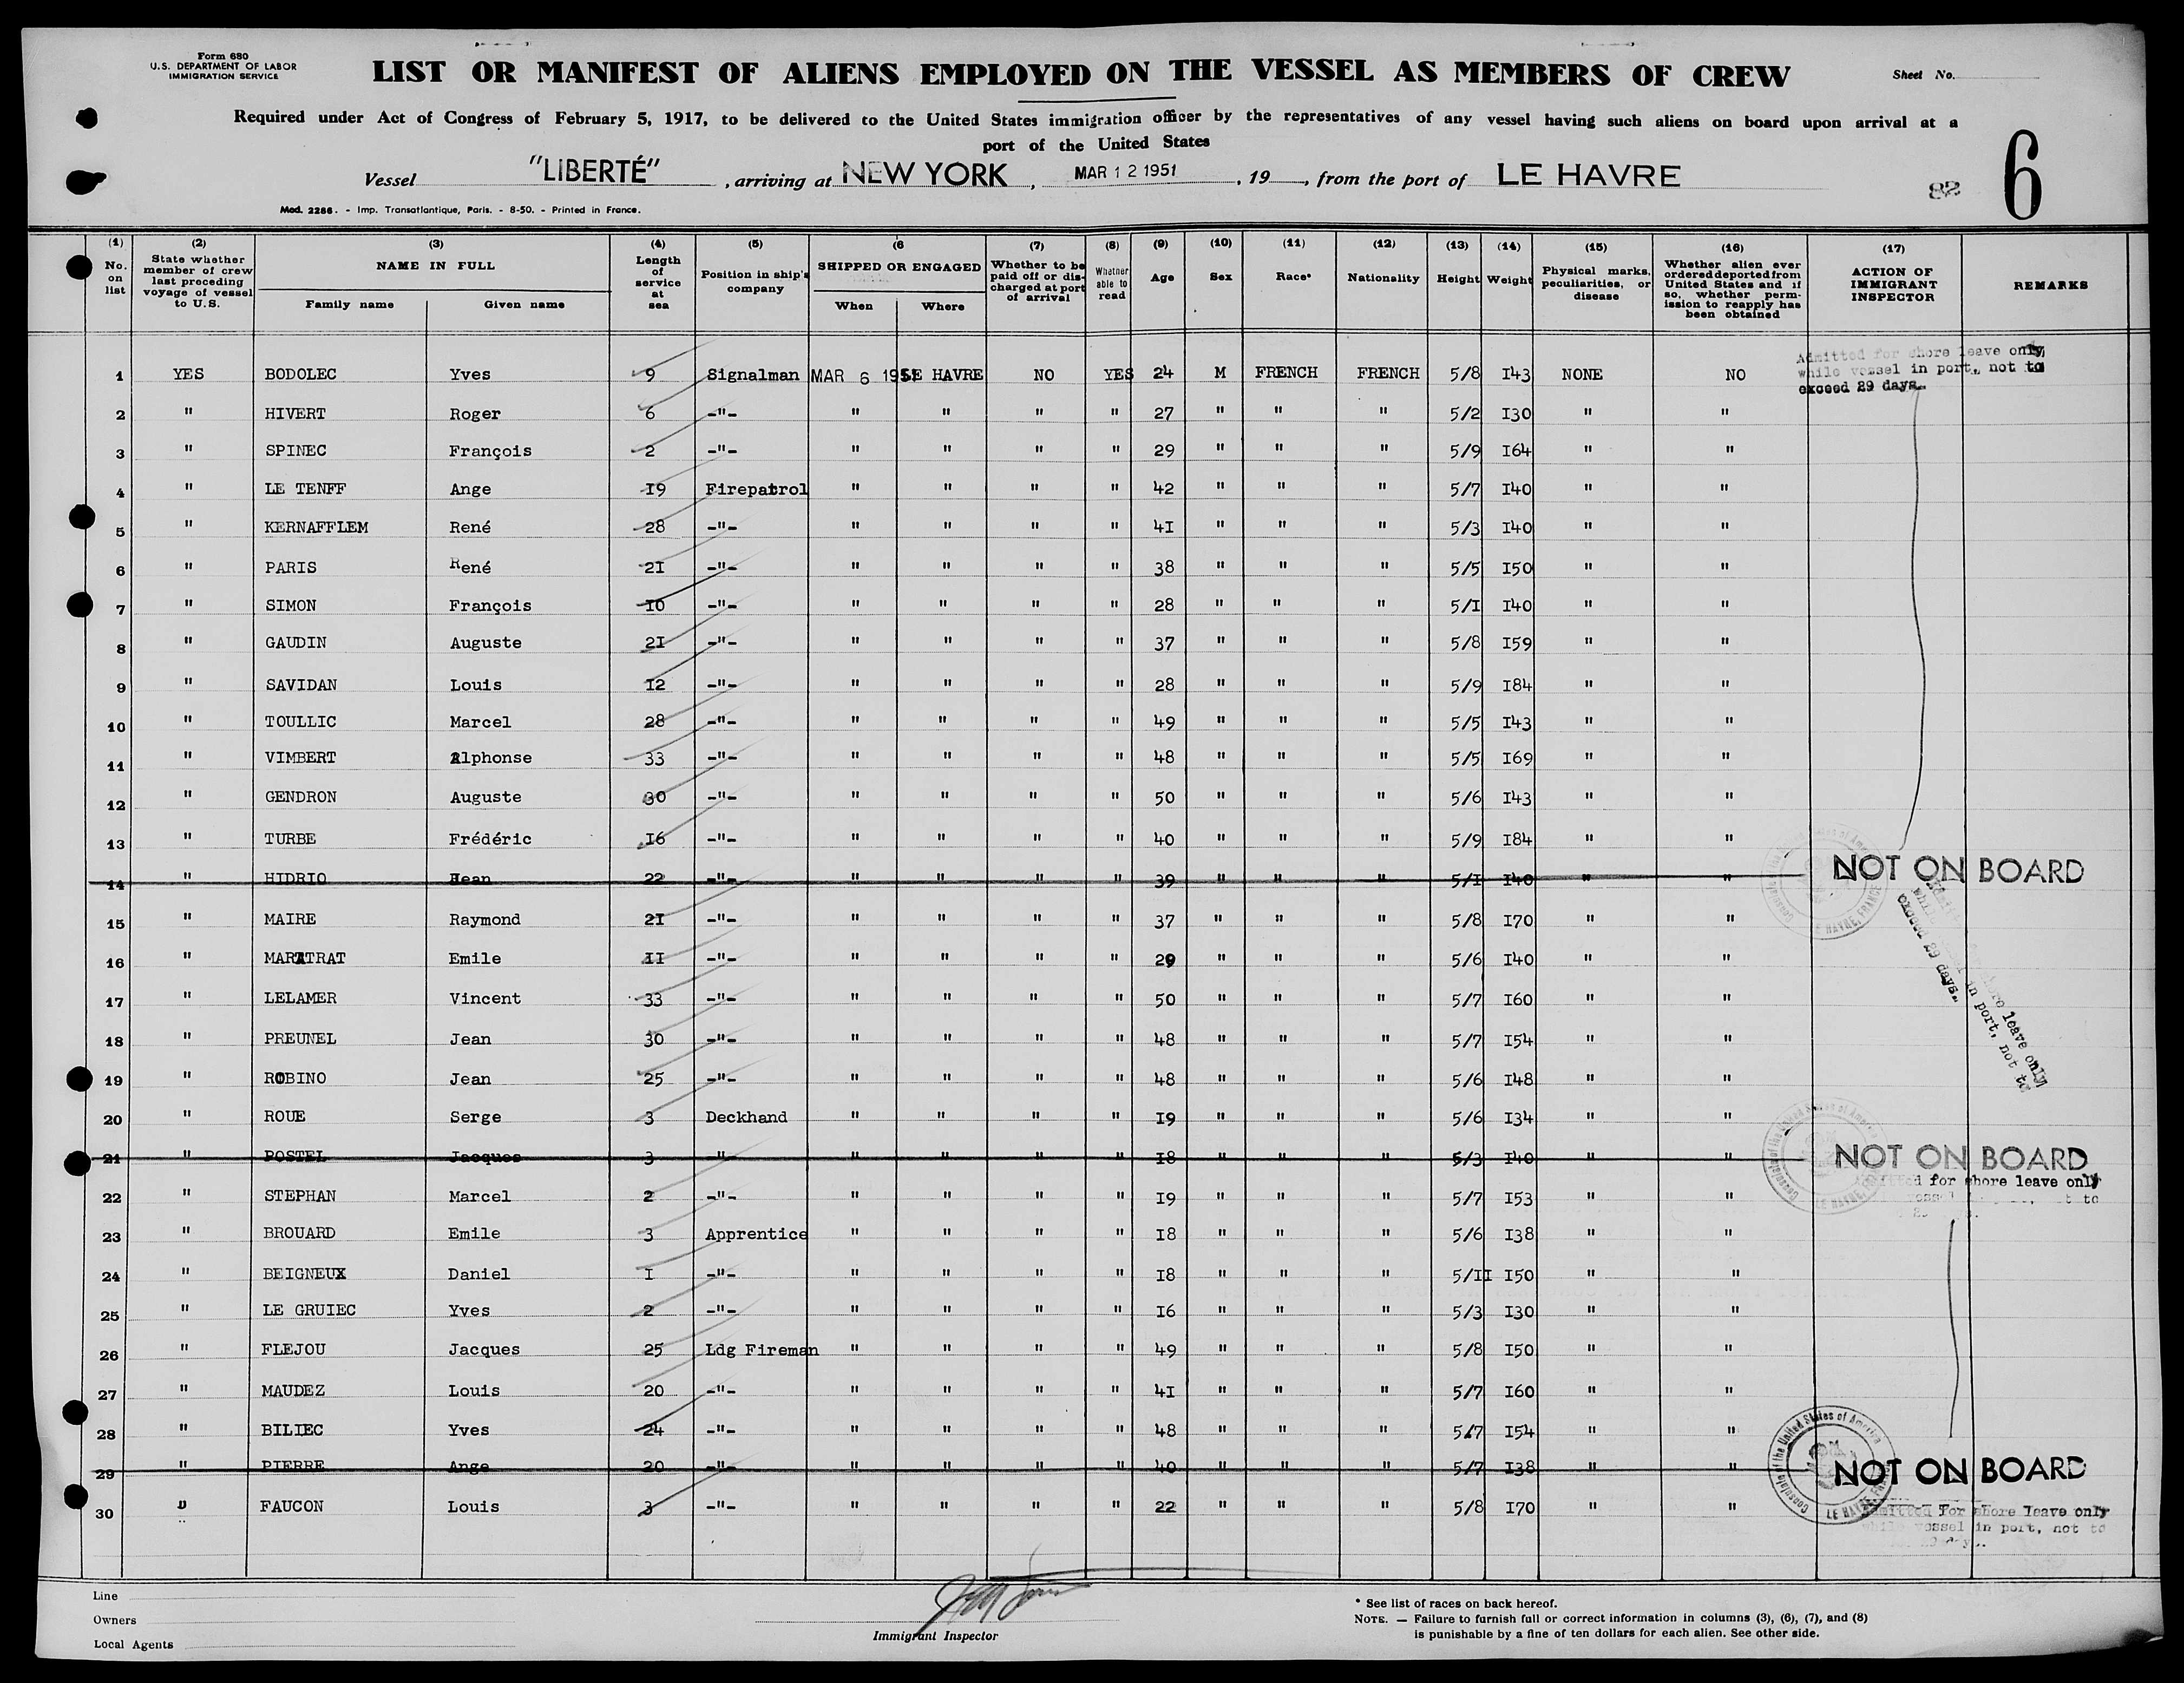 Form 680
U.S. DEPARTMENT OF LABOR
IMMIGRATION SERVICE
LIST OR MANIFEST OF ALIENS EMPLOYED ON THE VESSEL AS MEMBERS OF CREW
Sheet No.
Required under Act of Congress of February 5, 1917, to be delivered to the United States immigration officer by the representatives of any vessel having such aliens on board upon arrival at a
port of the United States
Vessel "LIBERTÉ", arriving at NEW YORK, MAR 12 1951, 19 , from the port of LE HAVRE
82 6
Mod. 2286. - Imp. Transatlantique, Paris. - 8-50. - Printed in France.
(1) No. on list
(2) State whether member of crew last preceding voyage of vessel to U.S.
(3) NAME IN FULL
Family name Given name
(4) Length of service at sea
(5) Position in ship's company
(6 SHIPPED OR ENGAGED
When Where
(7) Whether to be paid off or discharged at port of arrival
(8) Whether able to read
(9) Age
(10) Sex
(11) Race*
(12) Nationality
(13) Height
(14) Weight
(15) Physical marks, peculiarities, or disease
(16) Whether alien ever ordered deported from United States and if so, whether permission to reapply has been obtained
(17) ACTION OF IMMIGRANT INSPECTOR
REMARKS
1 YES BODOLEC Yves 9 Signalman MAR 6 1951 LE HAVRE NO YES 24 M FRENCH FRENCH 5/8 I43 NONE NO
Admitted for shore leave only,
while vessel in port, not to
exceed 29 days.
2 " HIVERT Roger 6 -"- " " " " 27 " " " 5/2 I30 " "
3 " SPINEC François 2 -"- " " " " 29 " " " 5/9 I64 " "
4 " LE TENFF Ange I9 Firepatrol " " " " 42 " " " 5/7 I40 " "
5 " KERNAFFLEM René 28 -"- " " " " 4I " " " 5/3 I40 " "
6 " PARIS René 2I -"- " " " " 38 " " " 5/5 I50 " "
7 " SIMON François I0 -"- " " " " 28 " " " 5/I I40 " "
8 " GAUDIN Auguste 2I -"- " " " " 37 " " " 5/8 I59 " "
9 " SAVIDAN Louis I2 -"- " " " " 28 " " " 5/9 I84 " "
10 " TOULLIC Marcel 28 -"- " " " " 49 " " " 5/5 I43 " "
11 " VIMBERT Alphonse 33 -"- " " " " 48 " " " 5/5 I69 " "
12 " GENDRON Auguste 30 -"- " " " " 50 " " " 5/6 I43 " "
13 " TURBE Frédéric I6 -"- " " " " 40 " " " 5/9 I84 " "
14 " HIDRIO Jean 22 -"- " " " " 39 " " " 5/I I40 " " NOT ON BOARD
15 " MAIRE Raymond 2I -"- " " " " 37 " " " 5/8 I70 " "
16 " MARATRAT Emile II -"- " " " " 29 " " " 5/6 I40 " "
17 " LELAMER Vincent 33 -"- " " " " 50 " " " 5/7 I60 " "
18 " PREUNEL Jean 30 -"- " " " " 48 " " " 5/7 I54 " "
19 " ROBINO Jean 25 -"- " " " " 48 " " " 5/6 I48 " "
shore leave only,
in port, not to
exceed 29 days.
20 " ROUE Serge 3 Deckhand " " " " I9 " " " 5/6 I34 " "
21 " POSTEL Jacques 3 -"- " " " " I8 " " " 5/3 I40 " " NOT ON BOARD
22 " STEPHAN Marcel 2 -"- " " " " I9 " " " 5/7 I53 " "
for shore leave only
vessel to
23 " BROUARD Emile 3 Apprentice " " " " I8 " " " 5/6 I38 " "
24 " BEIGNEUX Daniel I -"- " " " " I8 " " " 5/II I50 " "
25 " LE GRUIEC Yves 2 -"- " " " " I6 " " " 5/3 I30 " "
26 " FLEJOU Jacques 25 Ldg Fireman " " " " 49 " " " 5/8 I50 " "
27 " MAUDEZ Louis 20 -"- " " " " 4I " " " 5/7 I60 " "
28 " BILIEC Yves 24 -"- " " " " 48 " " " 5/7 I54 " "
29 " PIERRE Ange 20 -"- " " " " 40 " " " 5/7 I38 " " NOT ON BOARD
Consulate of the United States of America
LE HAVRE, FRANCE
30 " FAUCON Louis 3 -"- " " " " 22 " " " 5/8 I70 " "
Admitted for shore leave only
while vessel in port, not to
Line
Owners
Local Agents
Immigrant Inspector
* See list of races on back hereof.
NOTE. — Failure to furnish full or correct information in columns (3), (6), (7), and (8)
is punishable by a fine of ten dollars for each alien. See other side.